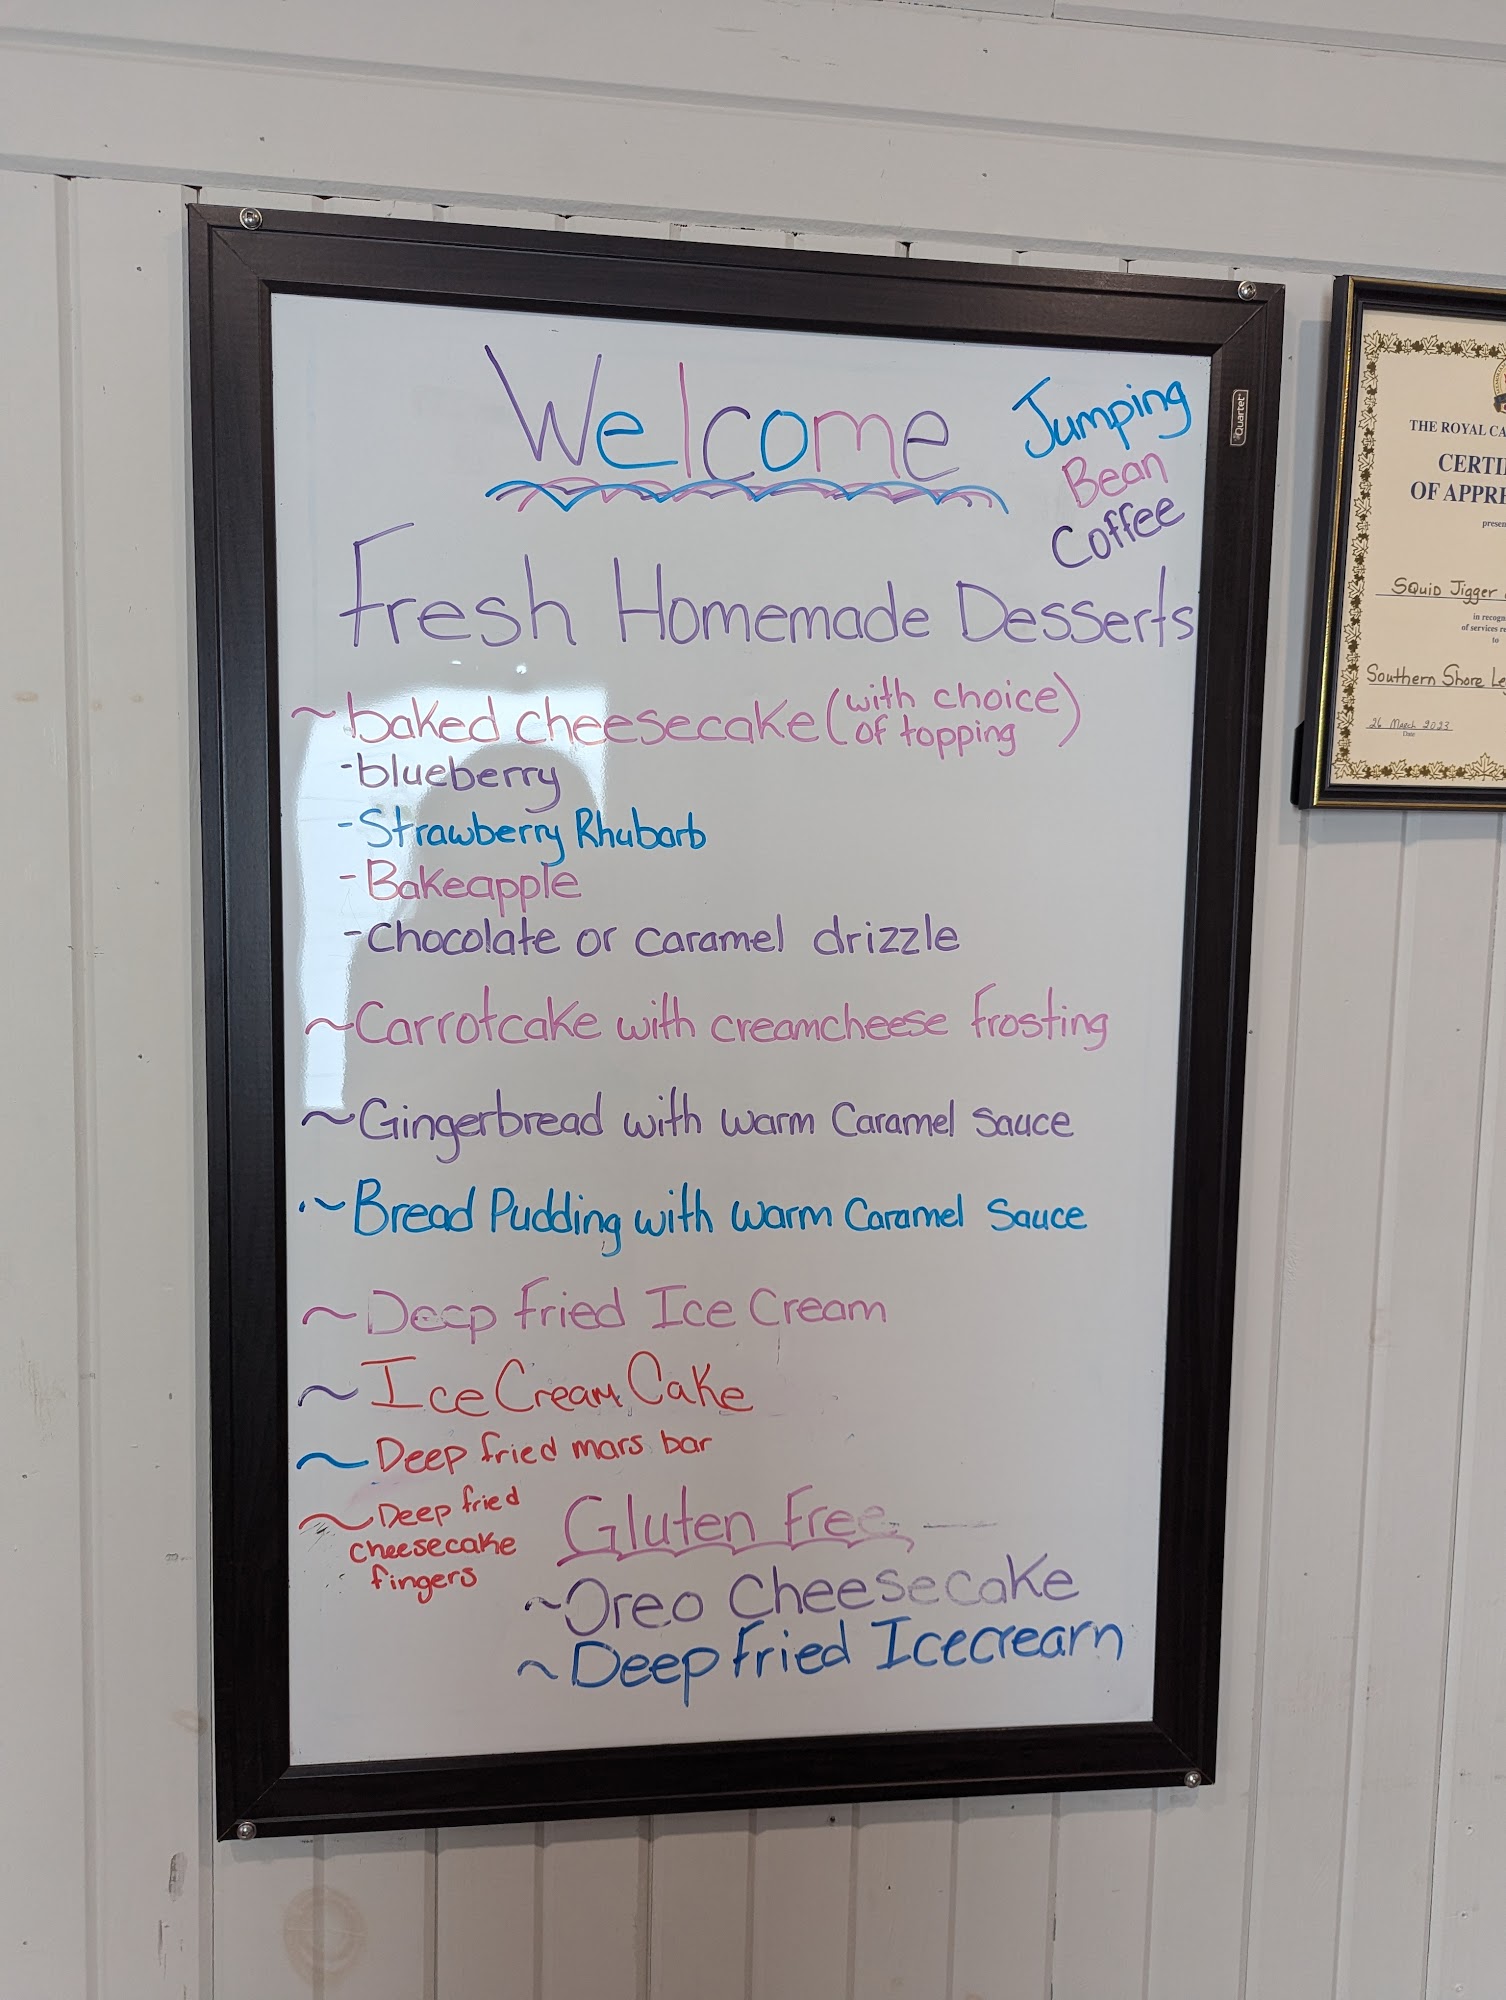 Welcome
Jumping
Bean
Coffee
Fresh Homemade Desserts
~baked cheesecake (with choice
of topping)
-blueberry
-Strawberry Rhubarb
-Bakeapple
-Chocolate or caramel drizzle
~Carrotcake with creamcheese frosting
~Gingerbread with warm Caramel sauce
~Bread Pudding with warm Caramel Sauce
~Deep fried Ice Cream
~Ice Cream Cake
~Deep fried mars bar
~Deep fried
cheesecake
fingers
Gluten Free
~Oreo Cheesecake
~Deep fried Icecream
Quartet
THE ROYAL CA
CERTI
OF APPRE
presen
Squid Jigger
in recogn
of services re
to
Southern Shore Le
26 March 2023
Date